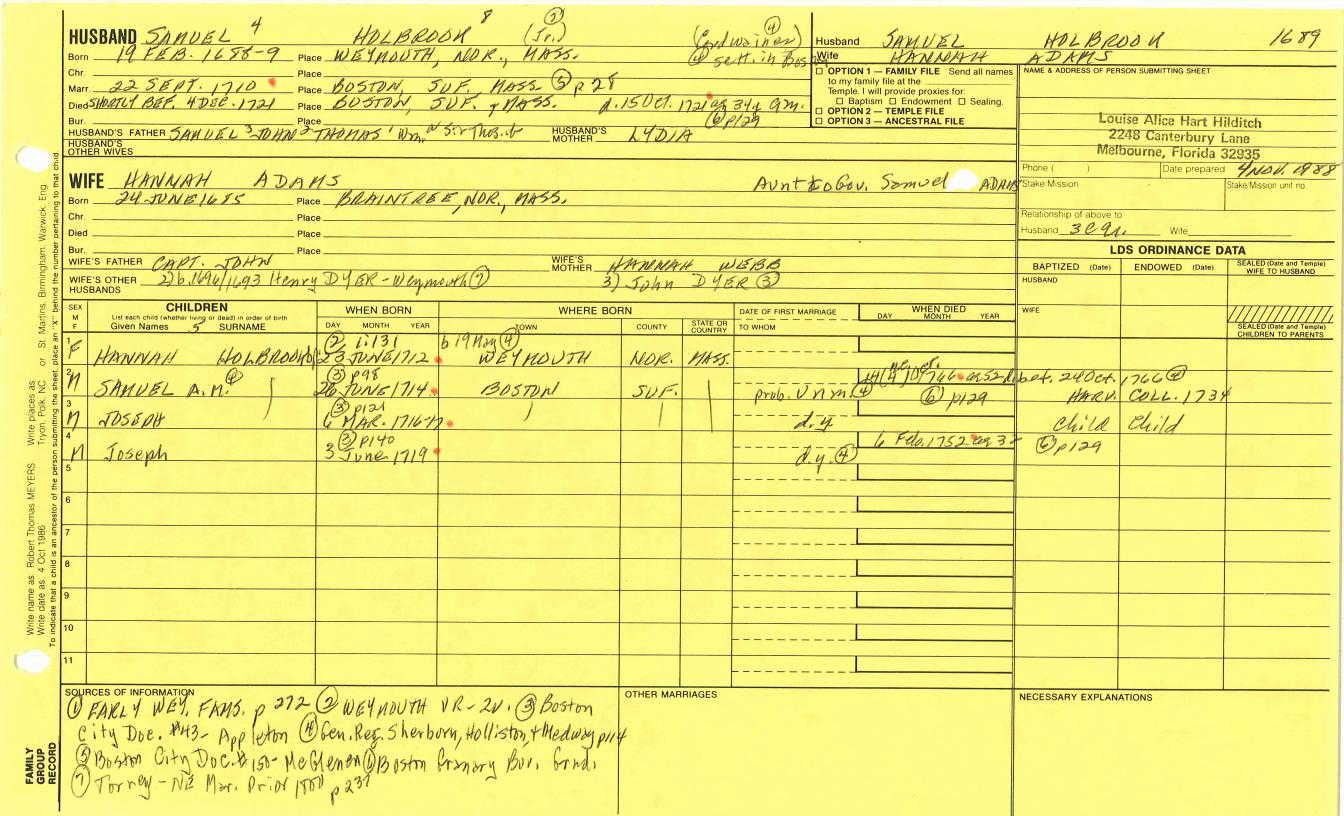 HUSBAND SAMUEL 4 HOLBROOK 8 (Jr.) (2) (Cordwainer) (4)
Born 19 FEB. 1688-9 Place WEYMOUTH, NOR., MASS. (4) sett. in Boston
Chr. Place
Marr. 22 SEPT. 1710 Place BOSTON, SUF. MASS. (5) p 28
Died SHORTLY BEF. 4 DEC. 1721 Place BOSTON, SUF., MASS. d. 15 OCT. 1721 ag 34y 9m.
Bur. Place (6) p129
HUSBAND'S FATHER SAMUEL 3 JOHN 2 THOMAS 1 Wm. HUSBAND'S MOTHER LYDIA
HUSBAND'S OTHER WIVES
Husband SAMUEL HOLBROOK 1689
Wife HANNAH ADAMS
OPTION 1 — FAMILY FILE Send all names
to my family file at the
Temple. I will provide proxies for:
Baptism Endowment Sealing.
OPTION 2 — TEMPLE FILE
OPTION 3 — ANCESTRAL FILE
NAME & ADDRESS OF PERSON SUBMITTING SHEET
Louise Alice Hart Hilditch
2248 Canterbury Lane
Melbourne, Florida 32935
Phone ( ) Date prepared 4 NOV. 1988
Stake Mission Stake/Mission unit no.
Relationship of above to
Husband 3C9r. Wife
WIFE HANNAH ADAMS Aunt to Gov. Samuel ADAMS
Born 24 JUNE 1685 Place BRAINTREE, NOR., MASS.
Chr. Place
Died Place
Bur. Place
WIFE'S FATHER CAPT. JOHN WIFE'S MOTHER HANNAH WEBB
WIFE'S OTHER HUSBANDS 2) b. 1696/1693 Henry DYER - Weymouth (7) 3) John DYER (3)
LDS ORDINANCE DATA
BAPTIZED (Date) ENDOWED (Date) SEALED (Date and Temple) WIFE TO HUSBAND
HUSBAND
WIFE
SEALED (Date and Temple) CHILDREN TO PARENTS
SEX M F
CHILDREN
List each child (whether living or dead) in order of birth
Given Names 5 SURNAME
WHEN BORN
DAY MONTH YEAR
WHERE BORN
TOWN COUNTY STATE OR COUNTRY
DATE OF FIRST MARRIAGE
TO WHOM
WHEN DIED
DAY MONTH YEAR
(2) 1:131 b 19 (4)
1 F HANNAH HOLBROOK 23 JUNE 1712 WEYMOUTH NOR. MASS.
(3) p98
2 M SAMUEL A.M. (4) 26 JUNE 1714 BOSTON SUF. prob. unm. (4) 14 (4) Oct. 1766 ag 52 d. bet. 24 Oct. 1766 (4)
(6) p129 HARV. COLL. 1734
(3) p121
3 M JOSEPH 6 MAR. 1716-17 d.y. Child Child
(3) p140
4 M Joseph 3 June 1719 d.y. (4) 6 Feb. 1752 ag 3- (6) p129
5
6
7
8
9
10
11
SOURCES OF INFORMATION
(1) EARLY WEY. FAMS. p 272 (2) WEYMOUTH VR-2v. (3) Boston
City Doc. #43- Appleton (4) Gen. Reg. Sherborn, Holliston, & Medway p114
(5) Boston City Doc. # 150- McGlenen (6) Boston Granary Bur. Grnd.
(7) Torrey - NE Mar. Prior 1700 p 237
OTHER MARRIAGES
NECESSARY EXPLANATIONS
FAMILY GROUP RECORD
Write name as: Robert Thomas MEYERS Write places as: Tryon, Polk, NC or St. Martins, Birmingham, Warwick, Eng.
Write date as: 4 Oct 1986
To indicate that a child is an ancestor of the person submitting the sheet, place an "X" behind the number pertaining to that child.